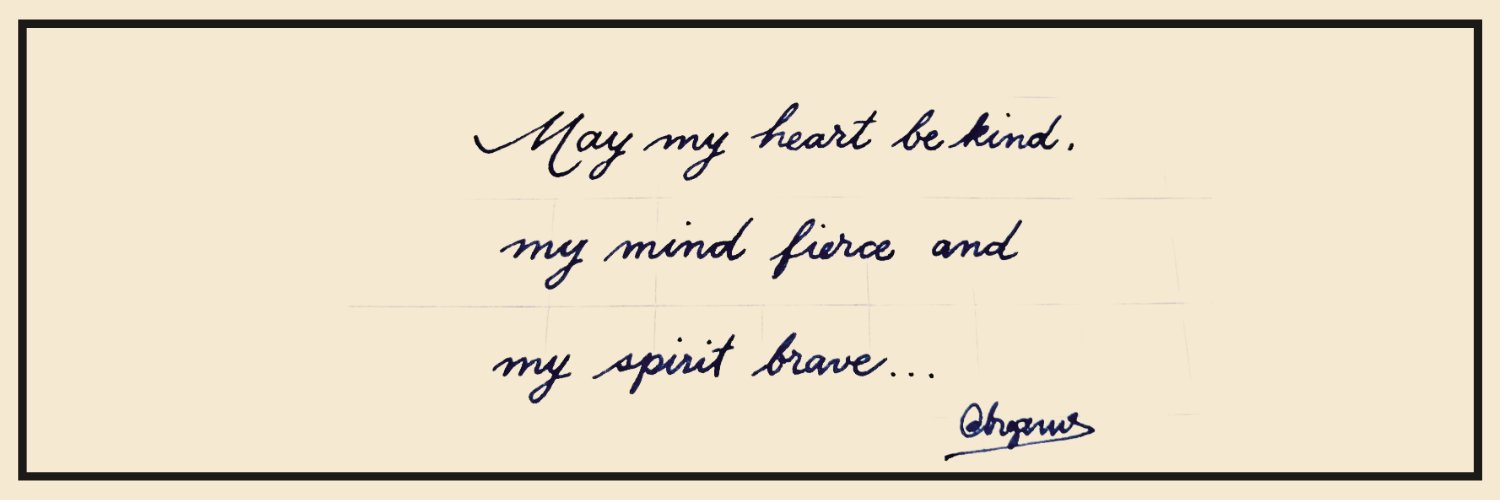 May my heart be kind.
my mind fierce and
my spirit brave...